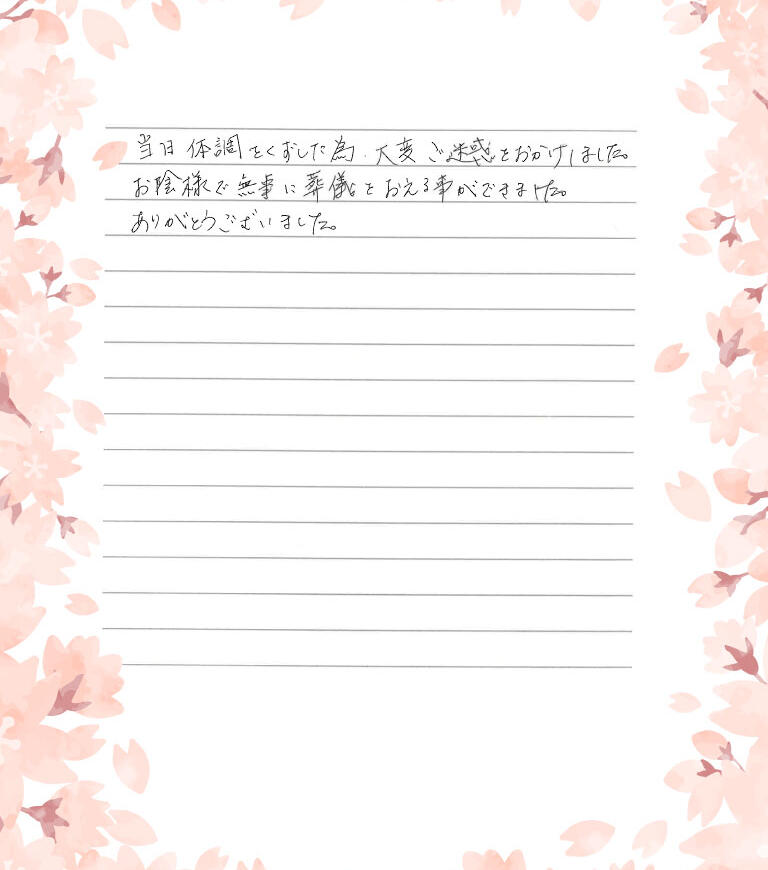 当日体調をくずした為、大変ご迷惑をおかけしました。
お陰様で無事に葬儀をおえる事ができました。
ありがとうございました。